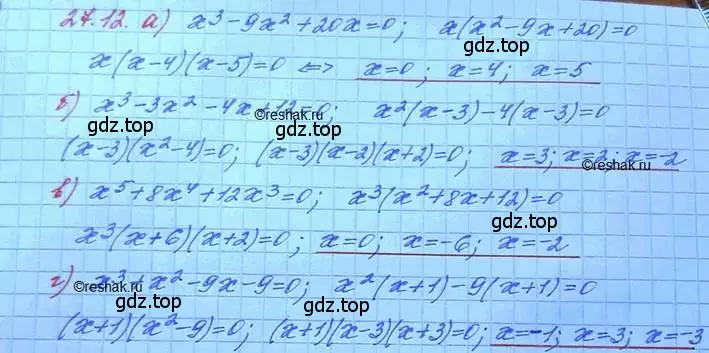 27.12. а) x³-9x²+20x=0; x(x²-9x+20)=0
x(x-4)(x-5)=0 ⇔ x=0; x=4; x=5
б) x³-3x²-4x+12=0; x²(x-3)-4(x-3)=0
©reshak.ru
gdz.top
gdz.top
(x-3)(x²-4)=0; (x-3)(x-2)(x+2)=0; x=3; x=2; x=-2
©reshak.ru
в) x⁵+8x⁴+12x³=0; x³(x²+8x+12)=0
gdz.top
gdz.top
x³(x+6)(x+2)=0; x=0; x=-6; x=-2
г) x³+x²-9x-9=0; x²(x+1)-9(x+1)=0
©reshak.ru
©reshak.ru
gdz.top
gdz.top
(x+1)(x²-9)=0; (x+1)(x-3)(x+3)=0; x=-1; x=3; x=-3